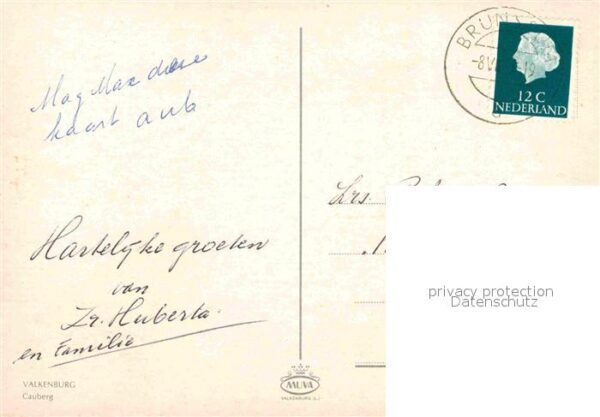 Mag Max deze
kaart aub
Hartelijke groeten
van
Zr. Huberta
en Familie
VALKENBURG
Cauberg
MUVA
VALKENBURG
Zrs.
-8 VI
12 C
NEDERLAND
privacy protection
Datenschutz